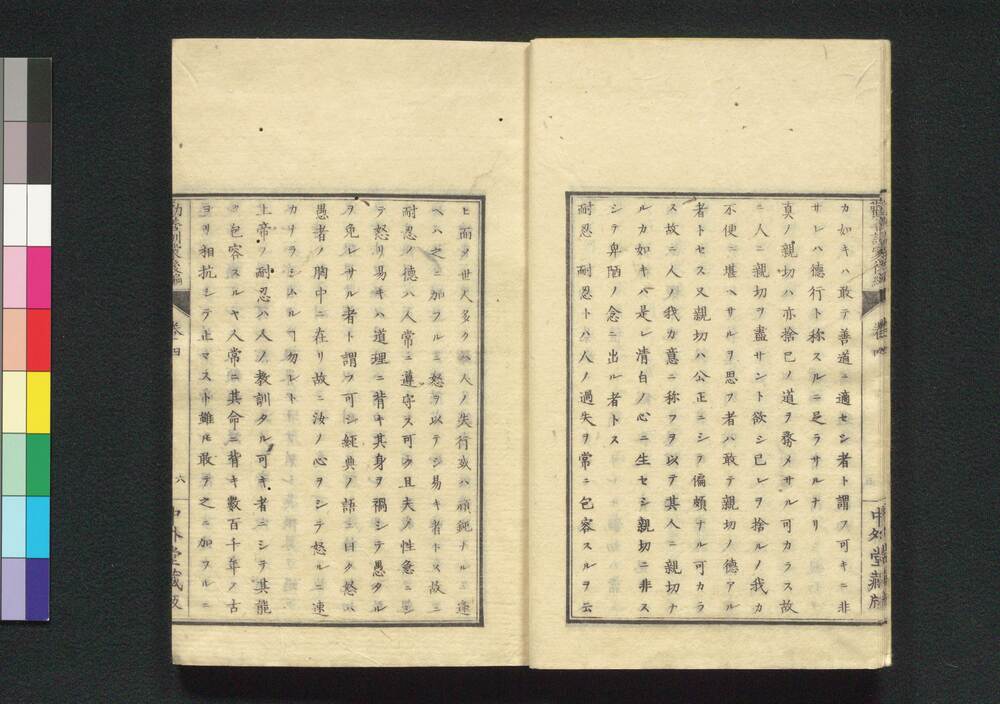 カ如キハ敢テ善道ニ適セシ者ト謂フ可キニ非
サレハ德行ト称スルニ足ラサルナリ
真ノ親切ハ亦捨己ノ道ヲ務メサル可カラス故
ニ人ニ親切ヲ盡サント欲シ已レヲ捨ルノ我カ
不便ニ堪ヘサルヲ思フ者ハ敢テ親切ノ德アル
者トセス又親切ハ公正ニシテ偏頗ナル可カラ
ス故ニ人ノ我カ意ニ称フヲ以テ其人ニ親切ナ
ルカ如キハ是レ清白ノ心ニ生セシ親切ニ非ス
シテ卑陋ノ念ニ出ル者トス
耐忍 耐忍トハ人ノ過失ヲ常ニ包容スルヲ云
中外堂藏版
ヒ而メ世人多クハ人ノ失行或ハ頑鈍ナルニ逢
ヘハ之ニ加フルニ怒ヲ以テシ易キ者トス故ニ
耐忍ノ德ハ人常ニ遵守ス可ク且夫ノ性急ニシ
テ怒リ易キハ道理ニ背キ其身ヲ禍シテ愚タル
ヲ免レサル者ト謂フ可シ経典ノ語ニ曰ク怒ハ
愚者ノ胸中ニ在リ故ニ汝ノ心ヲシテ怒ルニ速
カリラシムルヿ勿レト
上帝ノ耐忍ハ人ノ教訓タル可キ者ニシテ其能
ク包容スルヤ人常ニ其命ニ背キ數百千年ノ古
ヨリ相抗シテ止マスト雖𪜈敢テ之ニ加フルニ
卷四
六
中外堂藏版